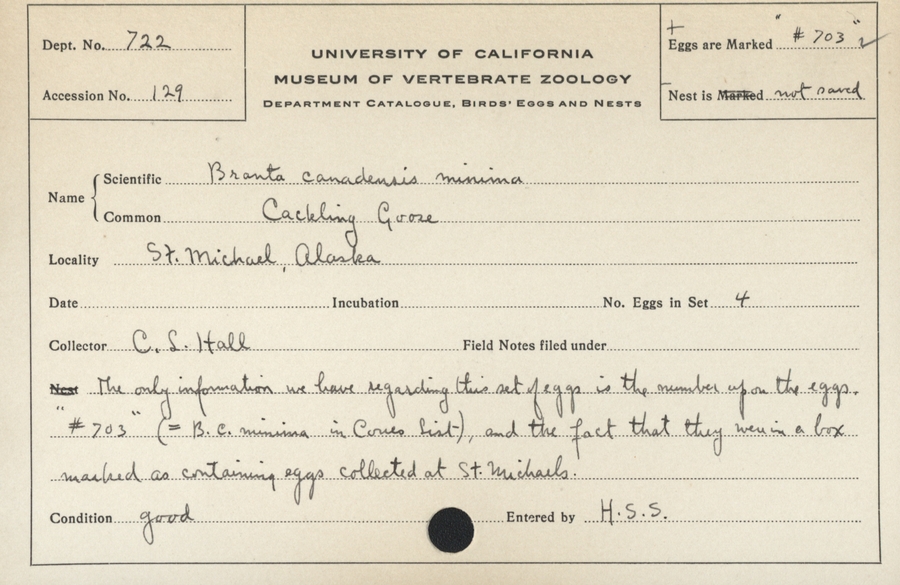 Dept. No. 722
Accession No. 129
UNIVERSITY OF CALIFORNIA
MUSEUM OF VERTEBRATE ZOOLOGY
DEPARTMENT CATALOGUE, BIRDS' EGGS AND NESTS
Eggs are Marked "#703"
Nest is Marked not saved
Name
Scientific Branta canadensis minima
Common Cackling Goose
Locality St. Michael, Alaska
Date Incubation No. Eggs in Set 4
Collector C. L. Hall Field Notes filed under
Nest The only information we have regarding this set of eggs is the number upon the eggs.
"#703" (= B. c. minima in Coues List), and the fact that they were in a box
marked as containing eggs collected at St. Michaels.
Condition good Entered by H.S.S.